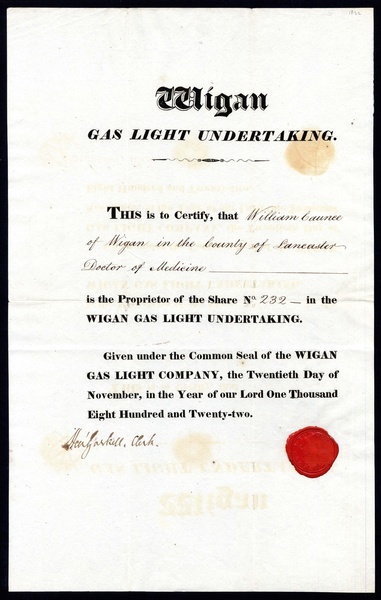 1822
Wigan
GAS LIGHT UNDERTAKING.
THIS is to Certify, that William Caunce
of Wigan in the County of Lancaster
Doctor of Medicine
is the Proprietor of the Share No. 232 in the
WIGAN GAS LIGHT UNDERTAKING.
Given under the Common Seal of the WIGAN
GAS LIGHT COMPANY, the Twentieth Day of
November, in the Year of our Lord One Thousand
Eight Hundred and Twenty-two.
Gaskell, Clerk.